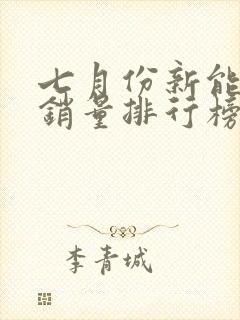 七月份新能
銷量排行榜
李青城